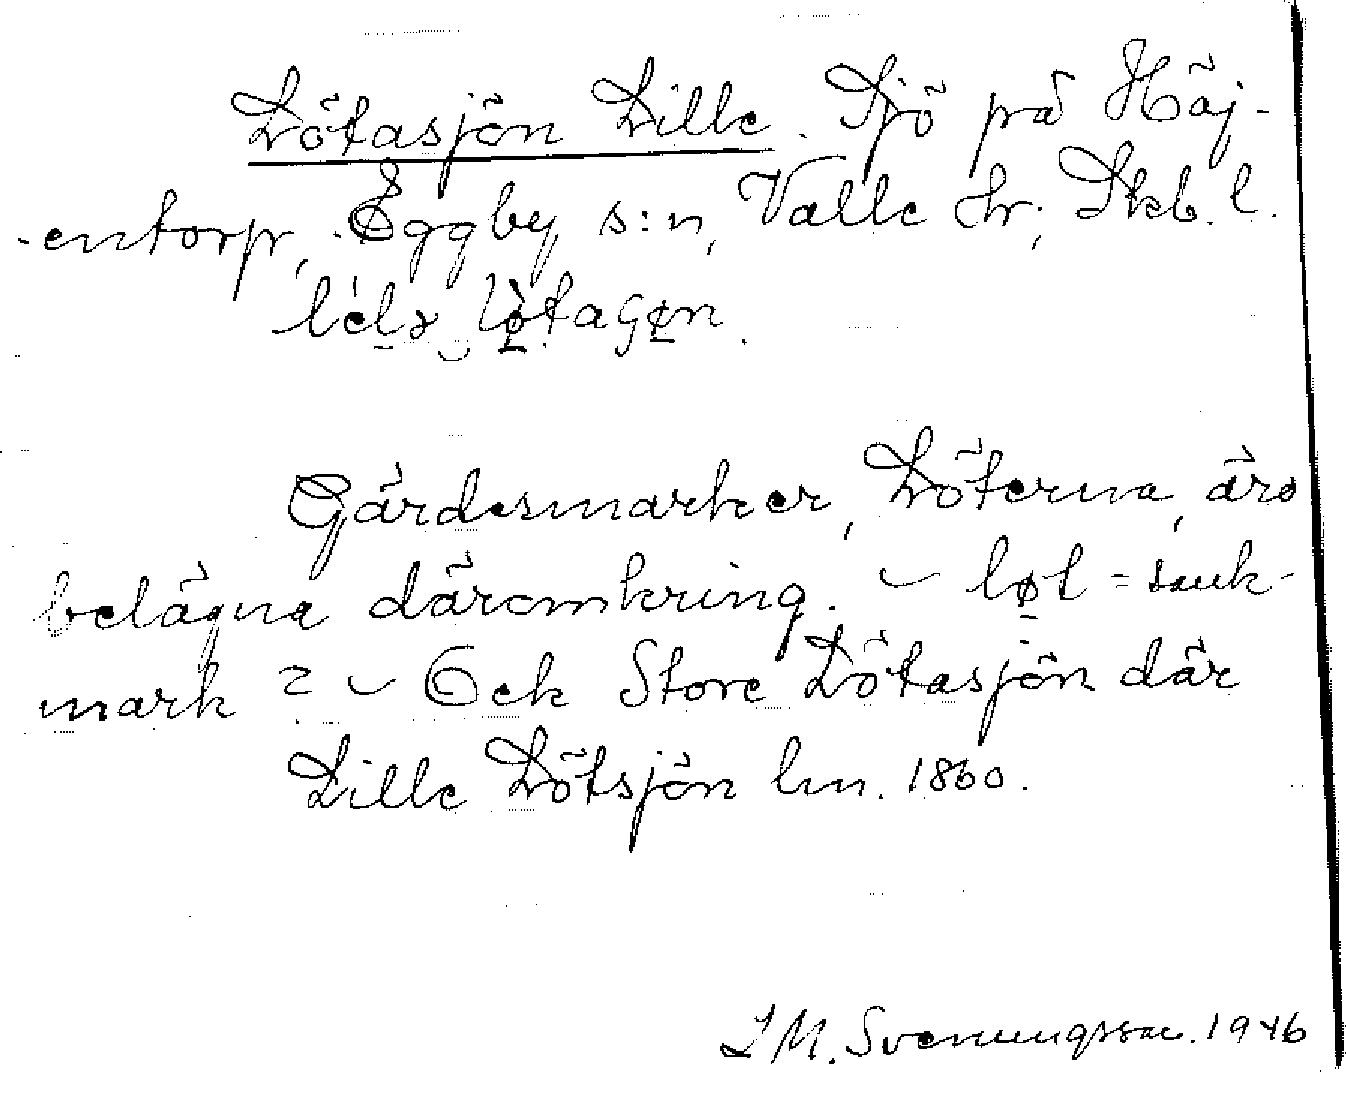 Lötasjön Lille. Sjö på Höj-
-entorp, Eggby s:n, Valle hr; Skb. l.
Gärdesmarker, Löterna, äro
belägna däromkring. – løt = sank-
mark ? – Ock Store Lötasjön där
Lille Lötsjön lm. 1860.
LM. Svenungsson. 1946